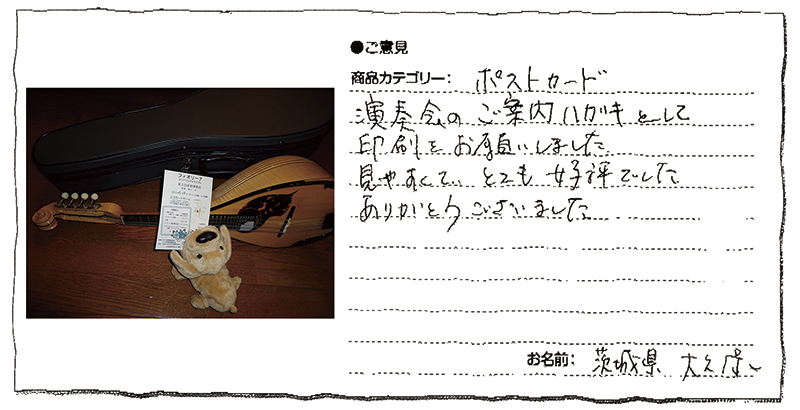 ●ご意見
商品カテゴリー: ポストカード
演奏会のご案内ハガキとして
印刷をお願いしました
見やすくて、とても好評でした
ありがとうございました
お名前: 茨城県
フィオリーナ